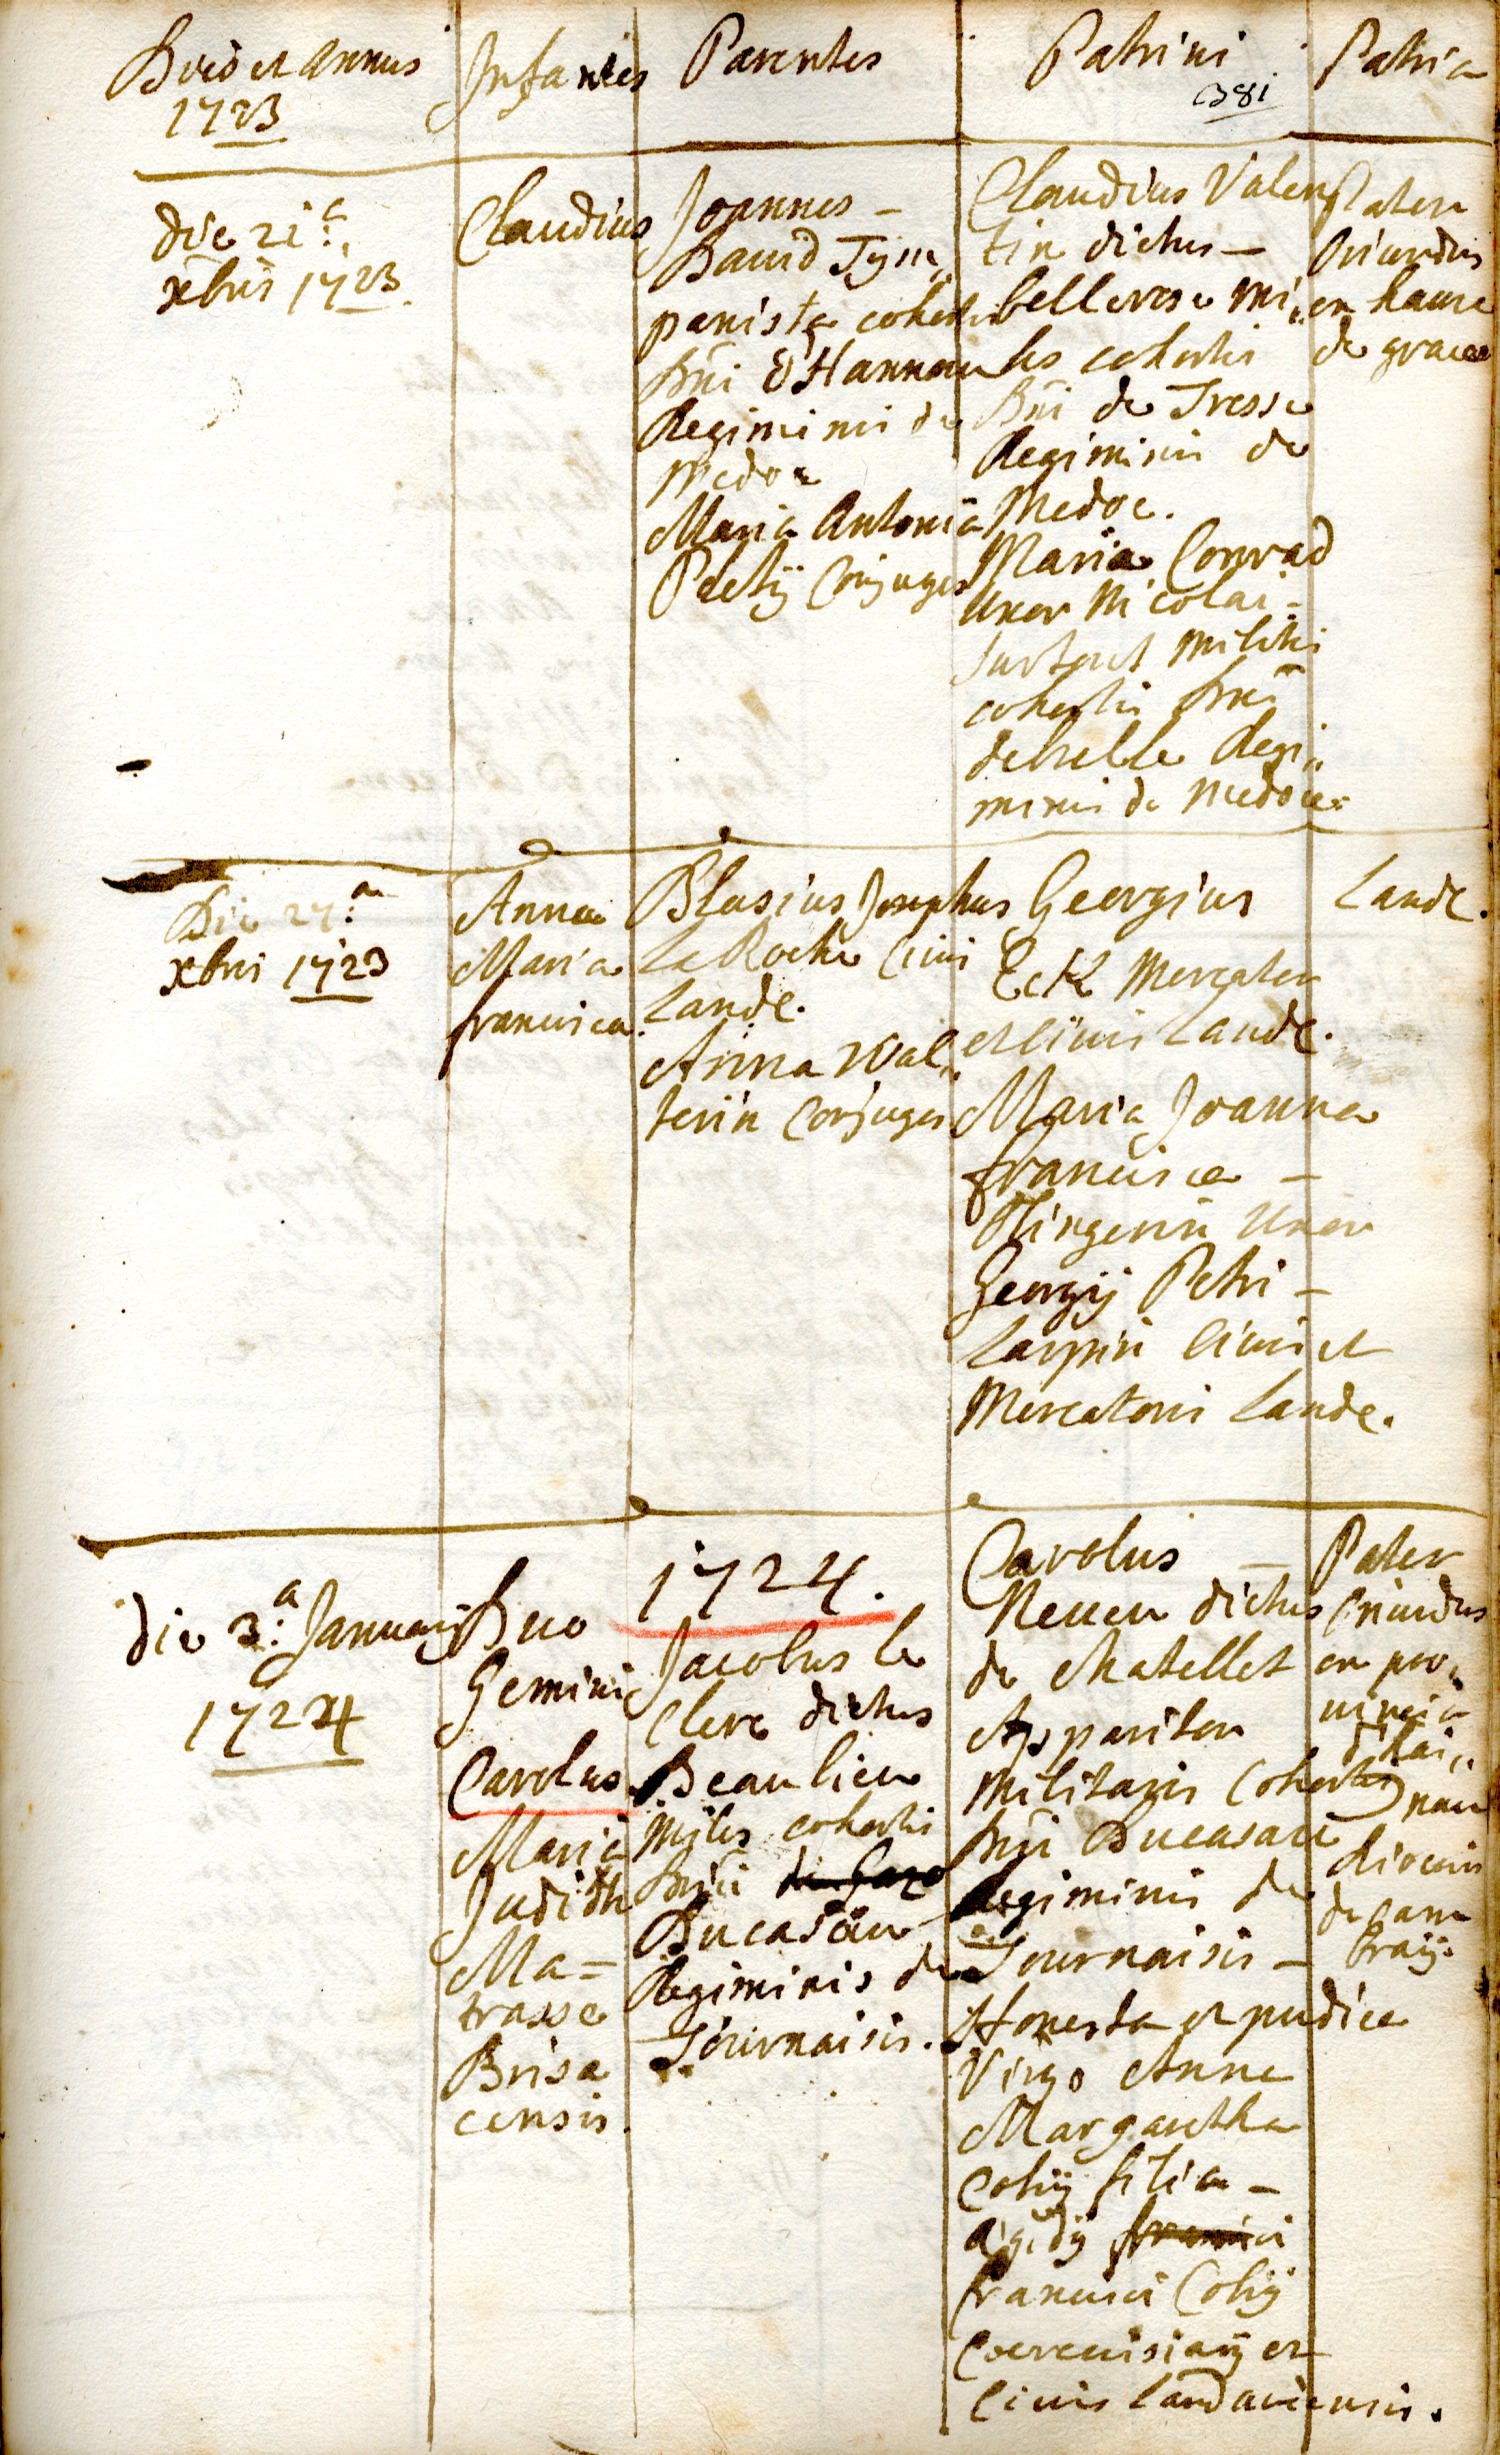 Dies et Annus
1723
Infantes
Parentes
Patrini
381
Patria
die 21:a
xbris 1723
Claudius
Joannes -
David Tym„
panista cohortis
Dni O Hannon
Regiminis de
Medoc
Maria Antonia
Petÿ Conjuges
Claudius Valen
tin dictus -
bellerose mi„
les cohortis
Dni de Tresse
Regiminis de
Medoc.
Maria Conrad
Uxor Nicolai -
Surtout Militis
cohortis Dni
delselle Regi„
minis de Medoc.
Pater
Oriundus
ex haure
de grace
Die 27:a
xbris 1723
Anna
Maria
francisca.
Blasius Josephus
La Roche Civis
Landt.
Anna Wal„
terin Conjuges
Georgius
Eck Mercator
et Civis Landt.
Maria Joanna
francisca -
Uxor
Georgÿ Petri -
Civis et
Mercatoris Landt.
Landt.
1724.
die 3:a Januarÿ
1724
Duo
Gemini
Carolus
Maria
Judith
Ma=
trasse
Brisa
censis.
Jacobus le
Clerc dictus
Beaulieu
Miles cohortis
Dni
Ducasau
Regiminis de
Tournaisis.
Carolus -
Neueu dictus
de Chatellet
Apparitor
Militaris Cohortis
Dni Ducasau
Regiminis de
Tournaisis -
Honesta et pudica
Virgo Anna
Margaretha
Colÿ filia -
Aigidÿ
francisci Colÿ
Coercuisiarÿ et
Civis Landauiensis.
Pater
Oriundus
ex pro„
uincia
d'hai„
nau
diocesis
de cam
bray.